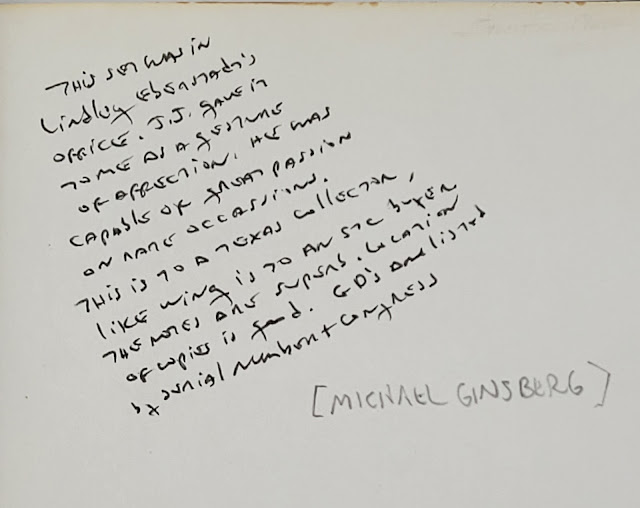 THIS SET WAS IN
Lindley EBERSTADT'S
OFFICE. J.J. GAVE IT
TO ME AS A GESTURE
OF AFFECTION. HE WAS
CAPABLE OF GREAT PASSION
ON RARE OCCASSIONS.
THIS IS TO A TEXAS COLLECTOR,
LIKE WING IS TO AN STC BUYER
THE NOTES ARE SUPERB. LOCATION
OF COPIES IS good. GD'S ARE LISTED
by serial number + Congress
[MICHAEL GINSBERG]